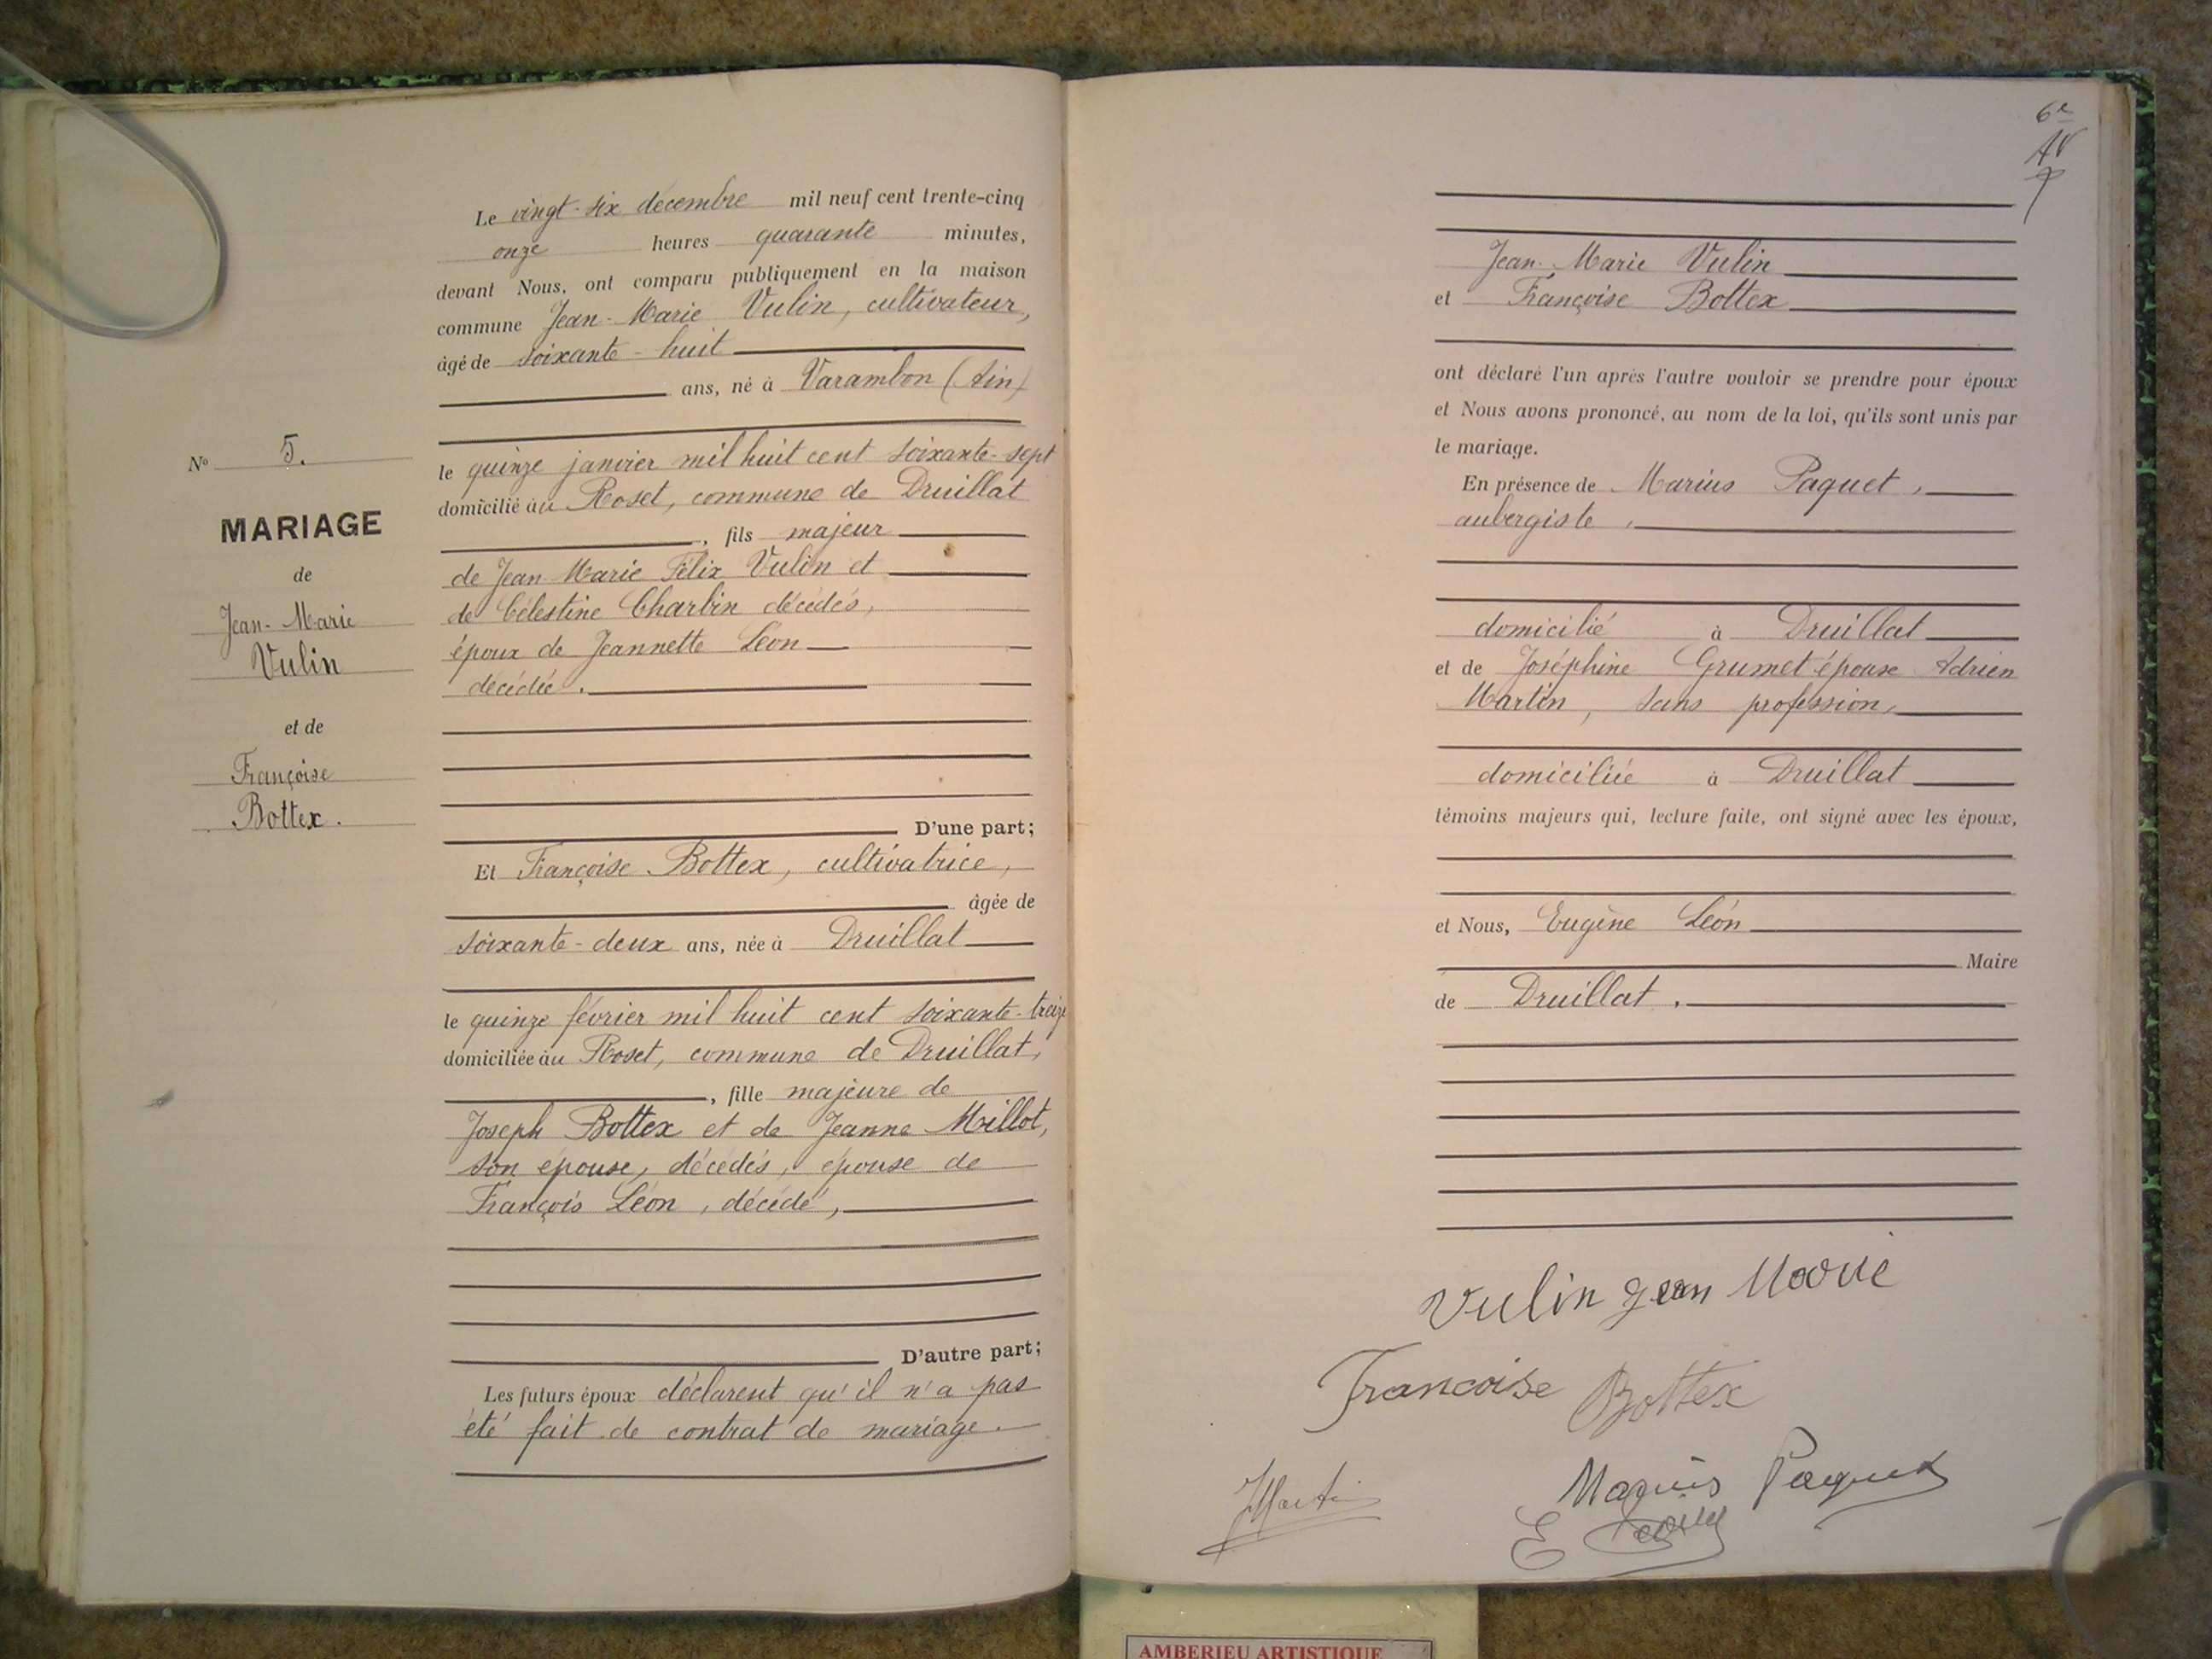 Le vingt-six décembre mil neuf cent trente-cinq
onze heures quarante minutes,
devant Nous, ont comparu publiquement en la maison
commune Jean-Marie Vulin, cultivateur,
âgé de soixante-huit
ans, né à Varambon (Ain)
le quinze janvier mil huit cent soixante-sept
domicilié au Roset, commune de Druillat
, fils majeur
de Jean-Marie Félix Vulin et
de Célestine Charbin décédés,
époux de Jeannette Léon
décédée.
D'une part;
Et Françoise Bottex, cultivatrice,
âgée de
soixante-deux ans, née à Druillat
le quinze février mil huit cent soixante-treize
domiciliée au Roset, commune de Druillat,
, fille majeure de
Joseph Bottex et de Jeanne Millot,
son épouse, décédés, épouse de
François Léon, décédé,
D'autre part;
Les futurs époux déclarent qu'il n'a pas
été fait de contrat de mariage.
N° 5.
MARIAGE
de
Jean-Marie
Vulin
et de
Françoise
Bottex.
6e
Jean-Marie Vulin
et Françoise Bottex
ont déclaré l'un après l'autre vouloir se prendre pour époux
et Nous avons prononcé, au nom de la loi, qu'ils sont unis par
le mariage.
En présence de Marius Paquet,
aubergiste,
domicilié à Druillat
et de Joséphine Grumet épouse Adrien
Martin, sans profession,
domiciliée à Druillat
témoins majeurs qui, lecture faite, ont signé avec les époux,
et Nous, Eugène Léon
Maire
de Druillat.
Vulin jean Marie
Francoise Bottex
JMartin
Marius Paquet
E Léon
AMBERIEU ARTISTIQUE